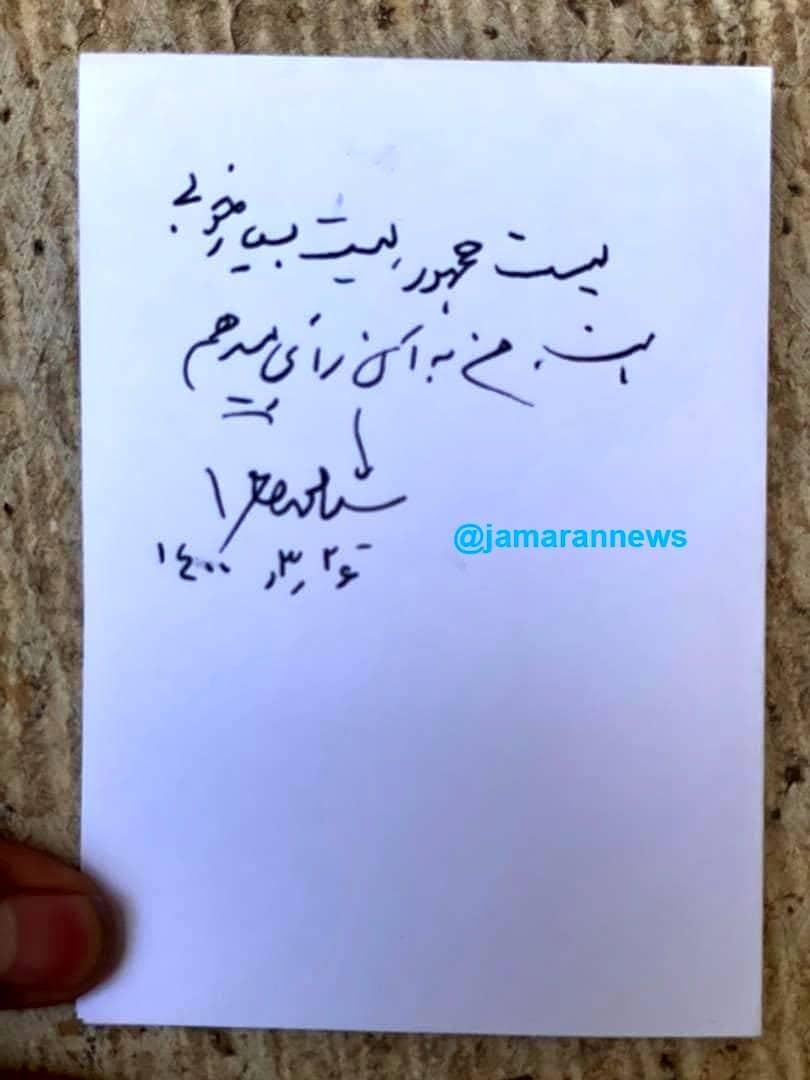 لیست جمهور لیست بسیار خوبی
است. من به آن رأی میدهم
@jamarannews
۱۴۰۰٫۳٫۲۶